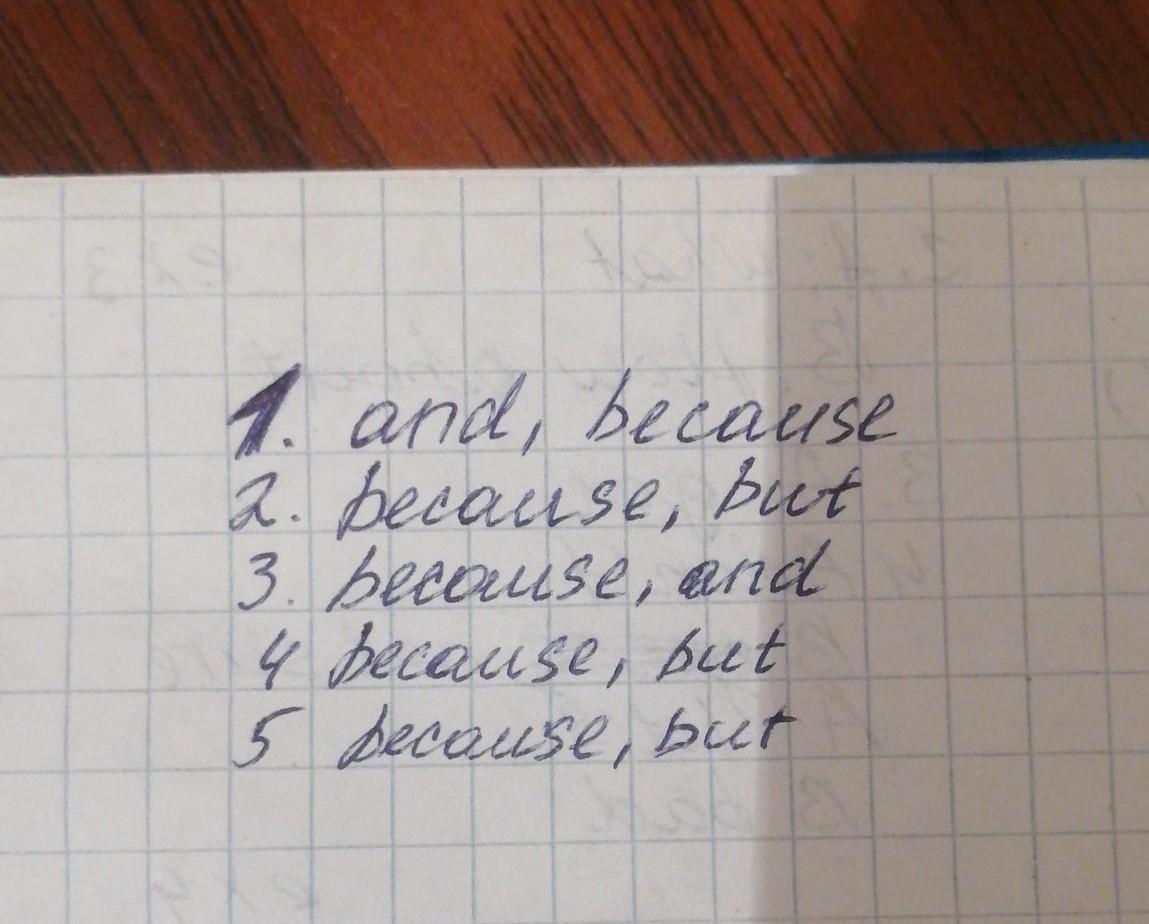 1. and, because
2. because, but
3. because, and
4 because, but
5 because, but